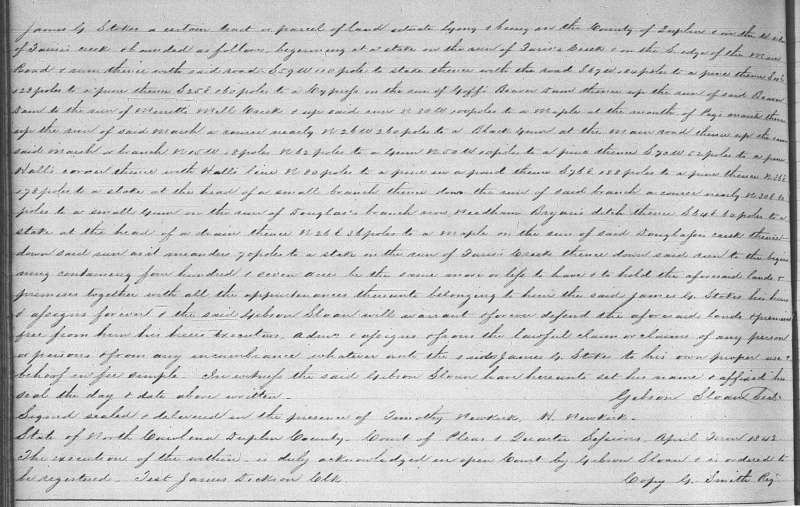 James G Stokes a certain tract or parcel of land situate lying & being in the County of Duplin & on the W side
of Turns creek & bounded as follows. begining at a stake on the run of Creek & on the E edge of the Main
Road & runs thence with said road S 59 W 110 poles to stake thence with the road poles to a pine thence
128 poles to a pine thence S 25 E 130 poles to a Cypress in the run of Goff's Beaver dam thence up the run of said Beaver
dam to the run of Merritts Mill Creek & up said run N 20 W 100 poles to a Maple at the mouth of marsh thence
up the run of said Marsh a course nearly N 26 W 260 poles to a Black Gum at the Main road thence up the run
said marsh & branch poles N 62 poles to a Gum N 50 W 100 poles to a pine thence S 70 W 52 poles to a pine
Halls corner thence with Halls line N 80 poles to a pine in a pond thence poles to a pine thence
poles to a stake at the head of a small branch thence down the run of said branch a course nearly
poles to a small Gum on the run of Douglas's branch near Needham Bryan's ditch thence S 34 E 60 poles to a
stake at the head of a drain thence N 26 E poles to a Maple on the run of said creek thence
down said run as it meanders 70 poles to a stake on the run of Creek thence down said run to the begin
ning containing four hundred & seven acres be the same more or less to have & to hold the aforesaid lands &
premises together with all the appurtenances thereunto belonging to him the said James G. Stokes his heirs
& assigns forever & the said Gibson Sloan will warrant & forever defend the aforesaid lands & premises
free from him his heirs Executors, Admrs & assigns & from the lawful claim or claims of any person
or persons & from any incumbrance whatever unto the said James G Stokes to his own proper use &
behoof in fee simple. In witness the said Gibson Sloan have hereunto set his name & affixed his
seal the day & date above written. Gibson Sloan Seal
Signed sealed & delivered in the presence of Timothy Newkirk, H. Newkirk.
State of North Carolina Duplin County. Court of Pleas & Quarter Sessions, April Term 1843
The execution of the within is duly acknowledged in open Court by Gibson Sloan & is ordered to
be registered. Test James Dickson Clk. Copy G. Smith Reg